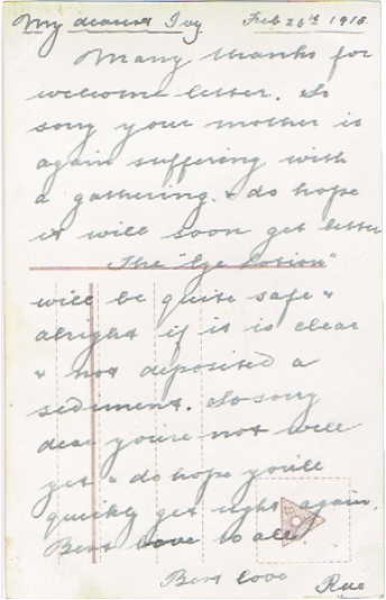 My dearest Ivy Feb 26th 1916
Many thanks for
welcome letter. So
sorry your mother is
again suffering with
a gathering. & do hope
it will soon get better
The "Eye Lotion"
will be quite safe &
alright if it is clear
& not deposited a
sediment. So sorry
dear you're not well
yet & do hope you'll
quickly get right again.
Best love to all.
Best love
Rue